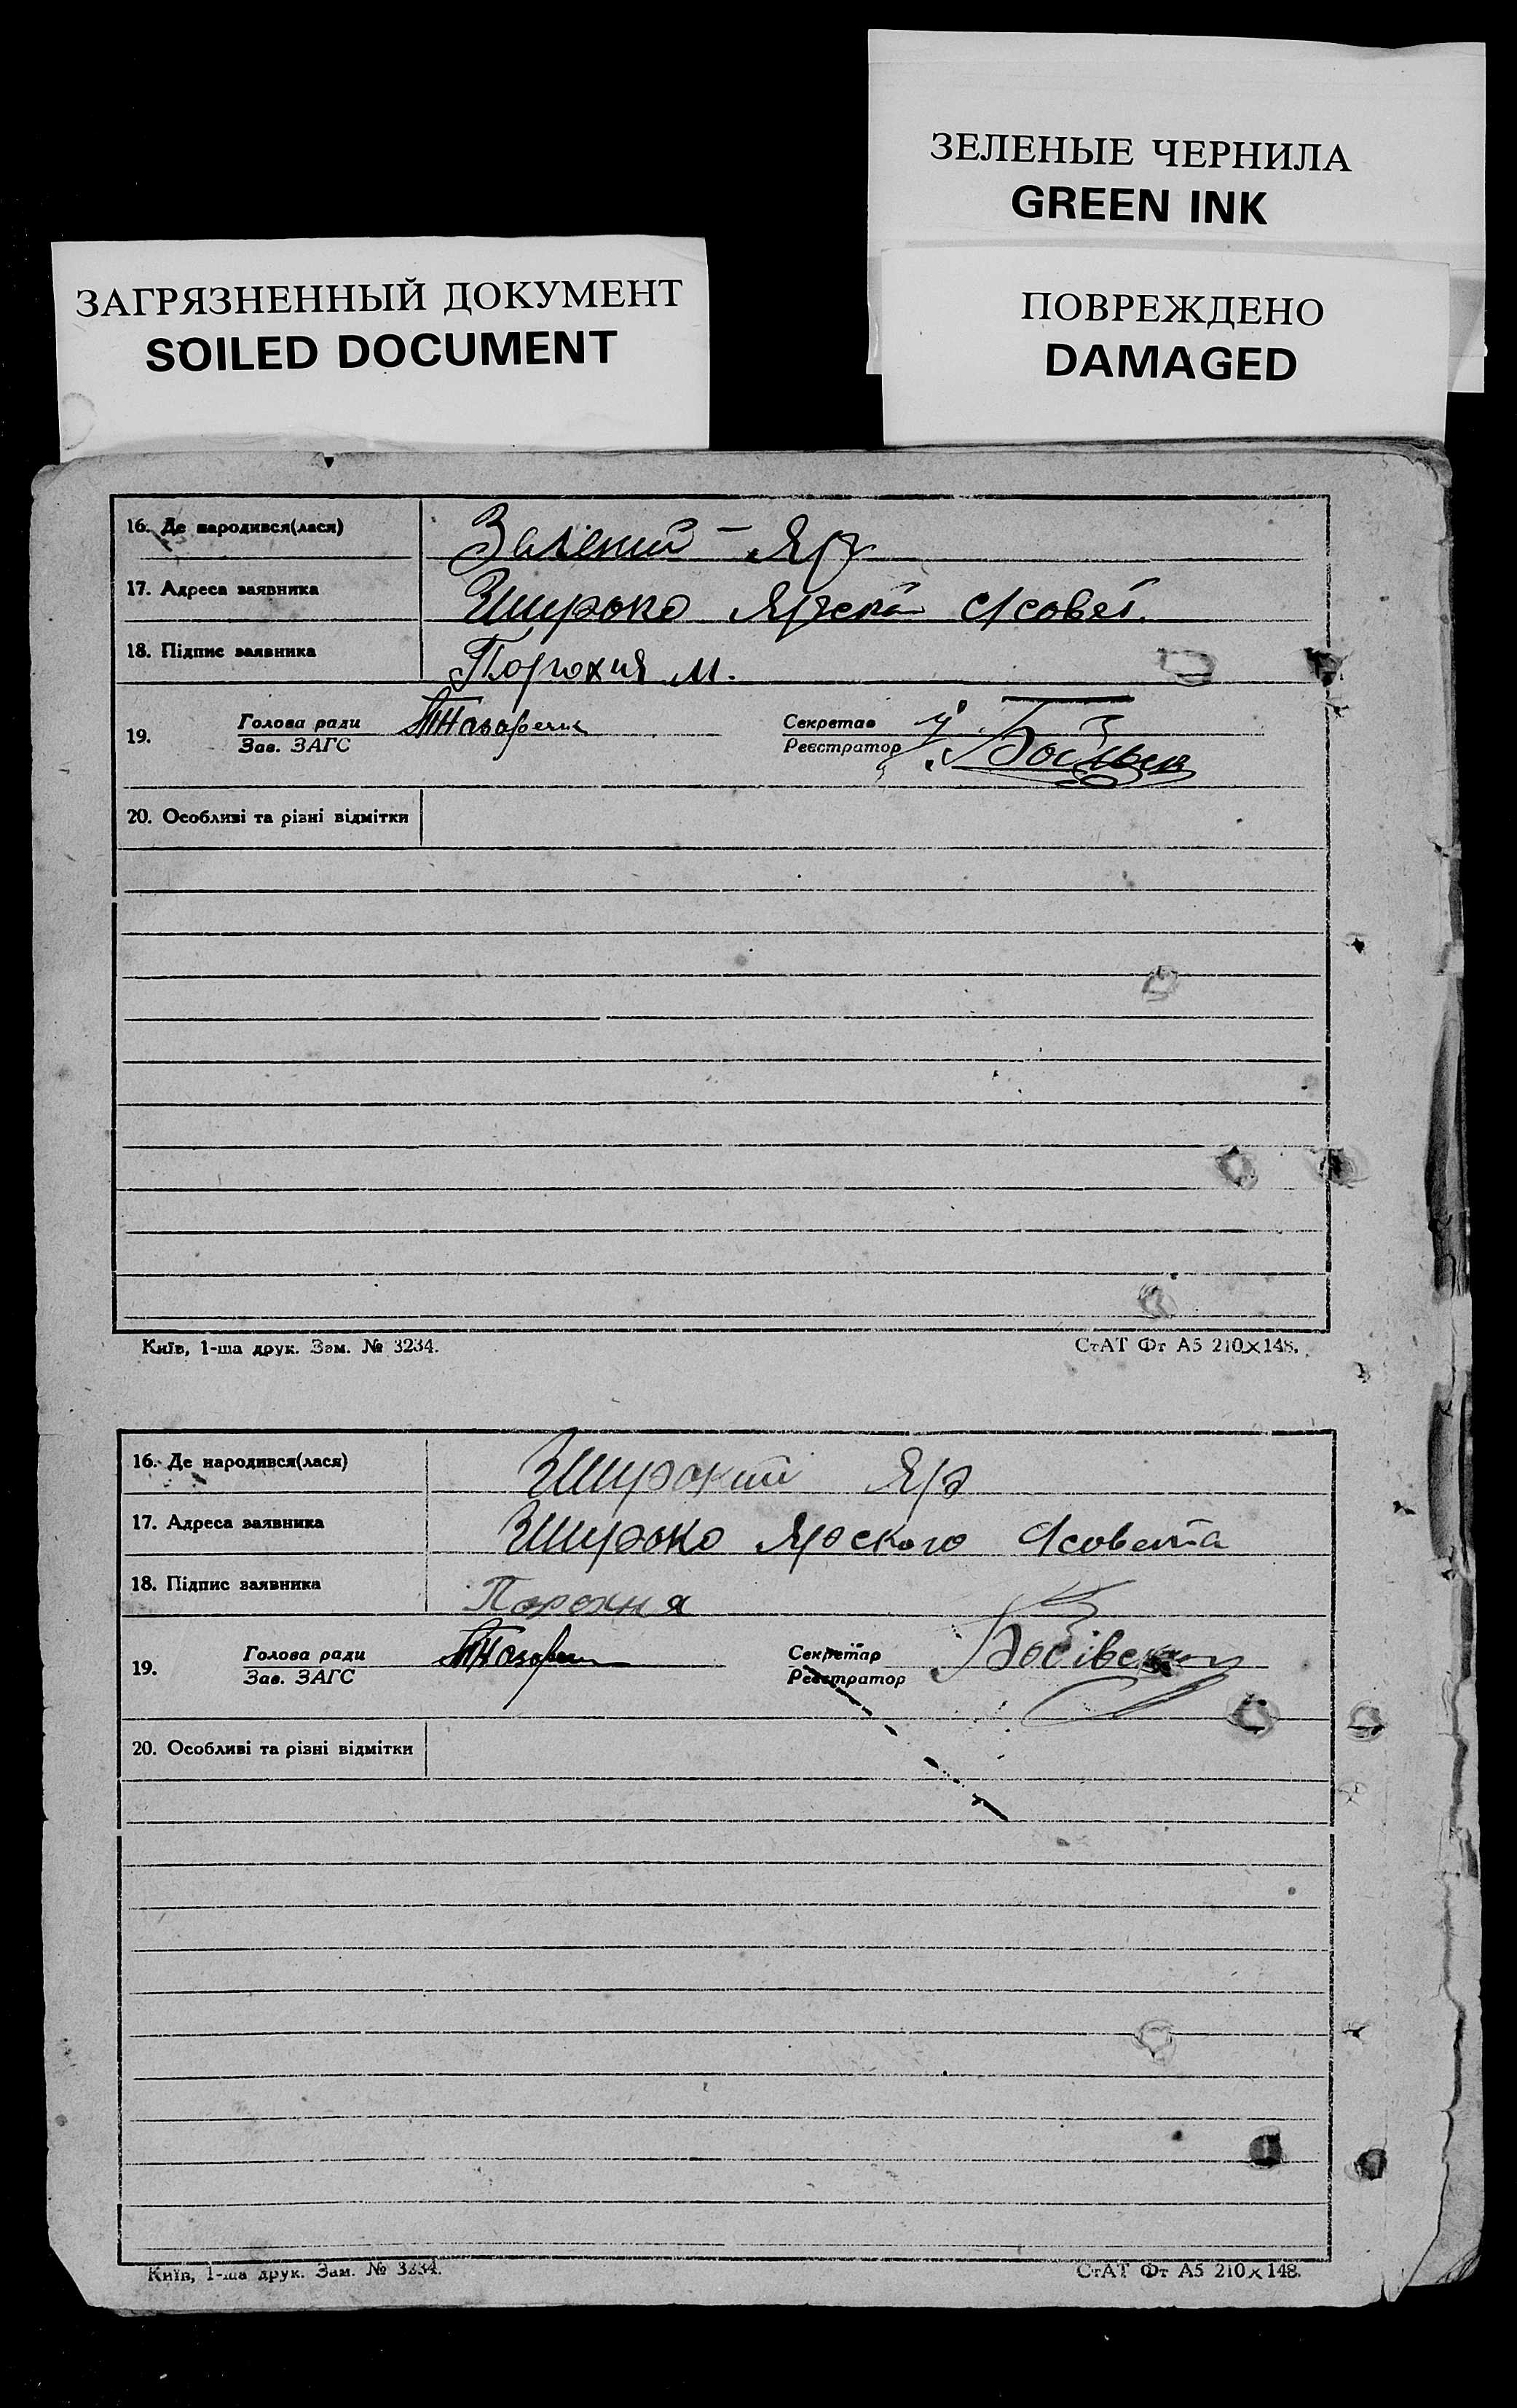 ЗЕЛЕНЫЕ ЧЕРНИЛА
GREEN INK
ЗАГРЯЗНЕННЫЙ ДОКУМЕНТ
SOILED DOCUMENT
ПОВРЕЖДЕНО
DAMAGED
16. Де народився(лася) Зелений - Яр
17. Адреса заявника Широко
18. Підпис заявника Порохня М.
19. Голова ради Секретар
Зав. ЗАГС Реєстратор
20. Особливі та різні відмітки
Київ, 1-ша друк. Зам. № 3234. СтАТ Фт А5 210×148.
16. Де народився(лася) Широкий Яр
17. Адреса заявника Широко Ярского
18. Підпис заявника Порохня
19. Голова ради Секретар
Зав. ЗАГС Реєстратор
20. Особливі та різні відмітки
Київ, 1-ша друк. Зам. № 3234. СтАТ Фт А5 210×148.